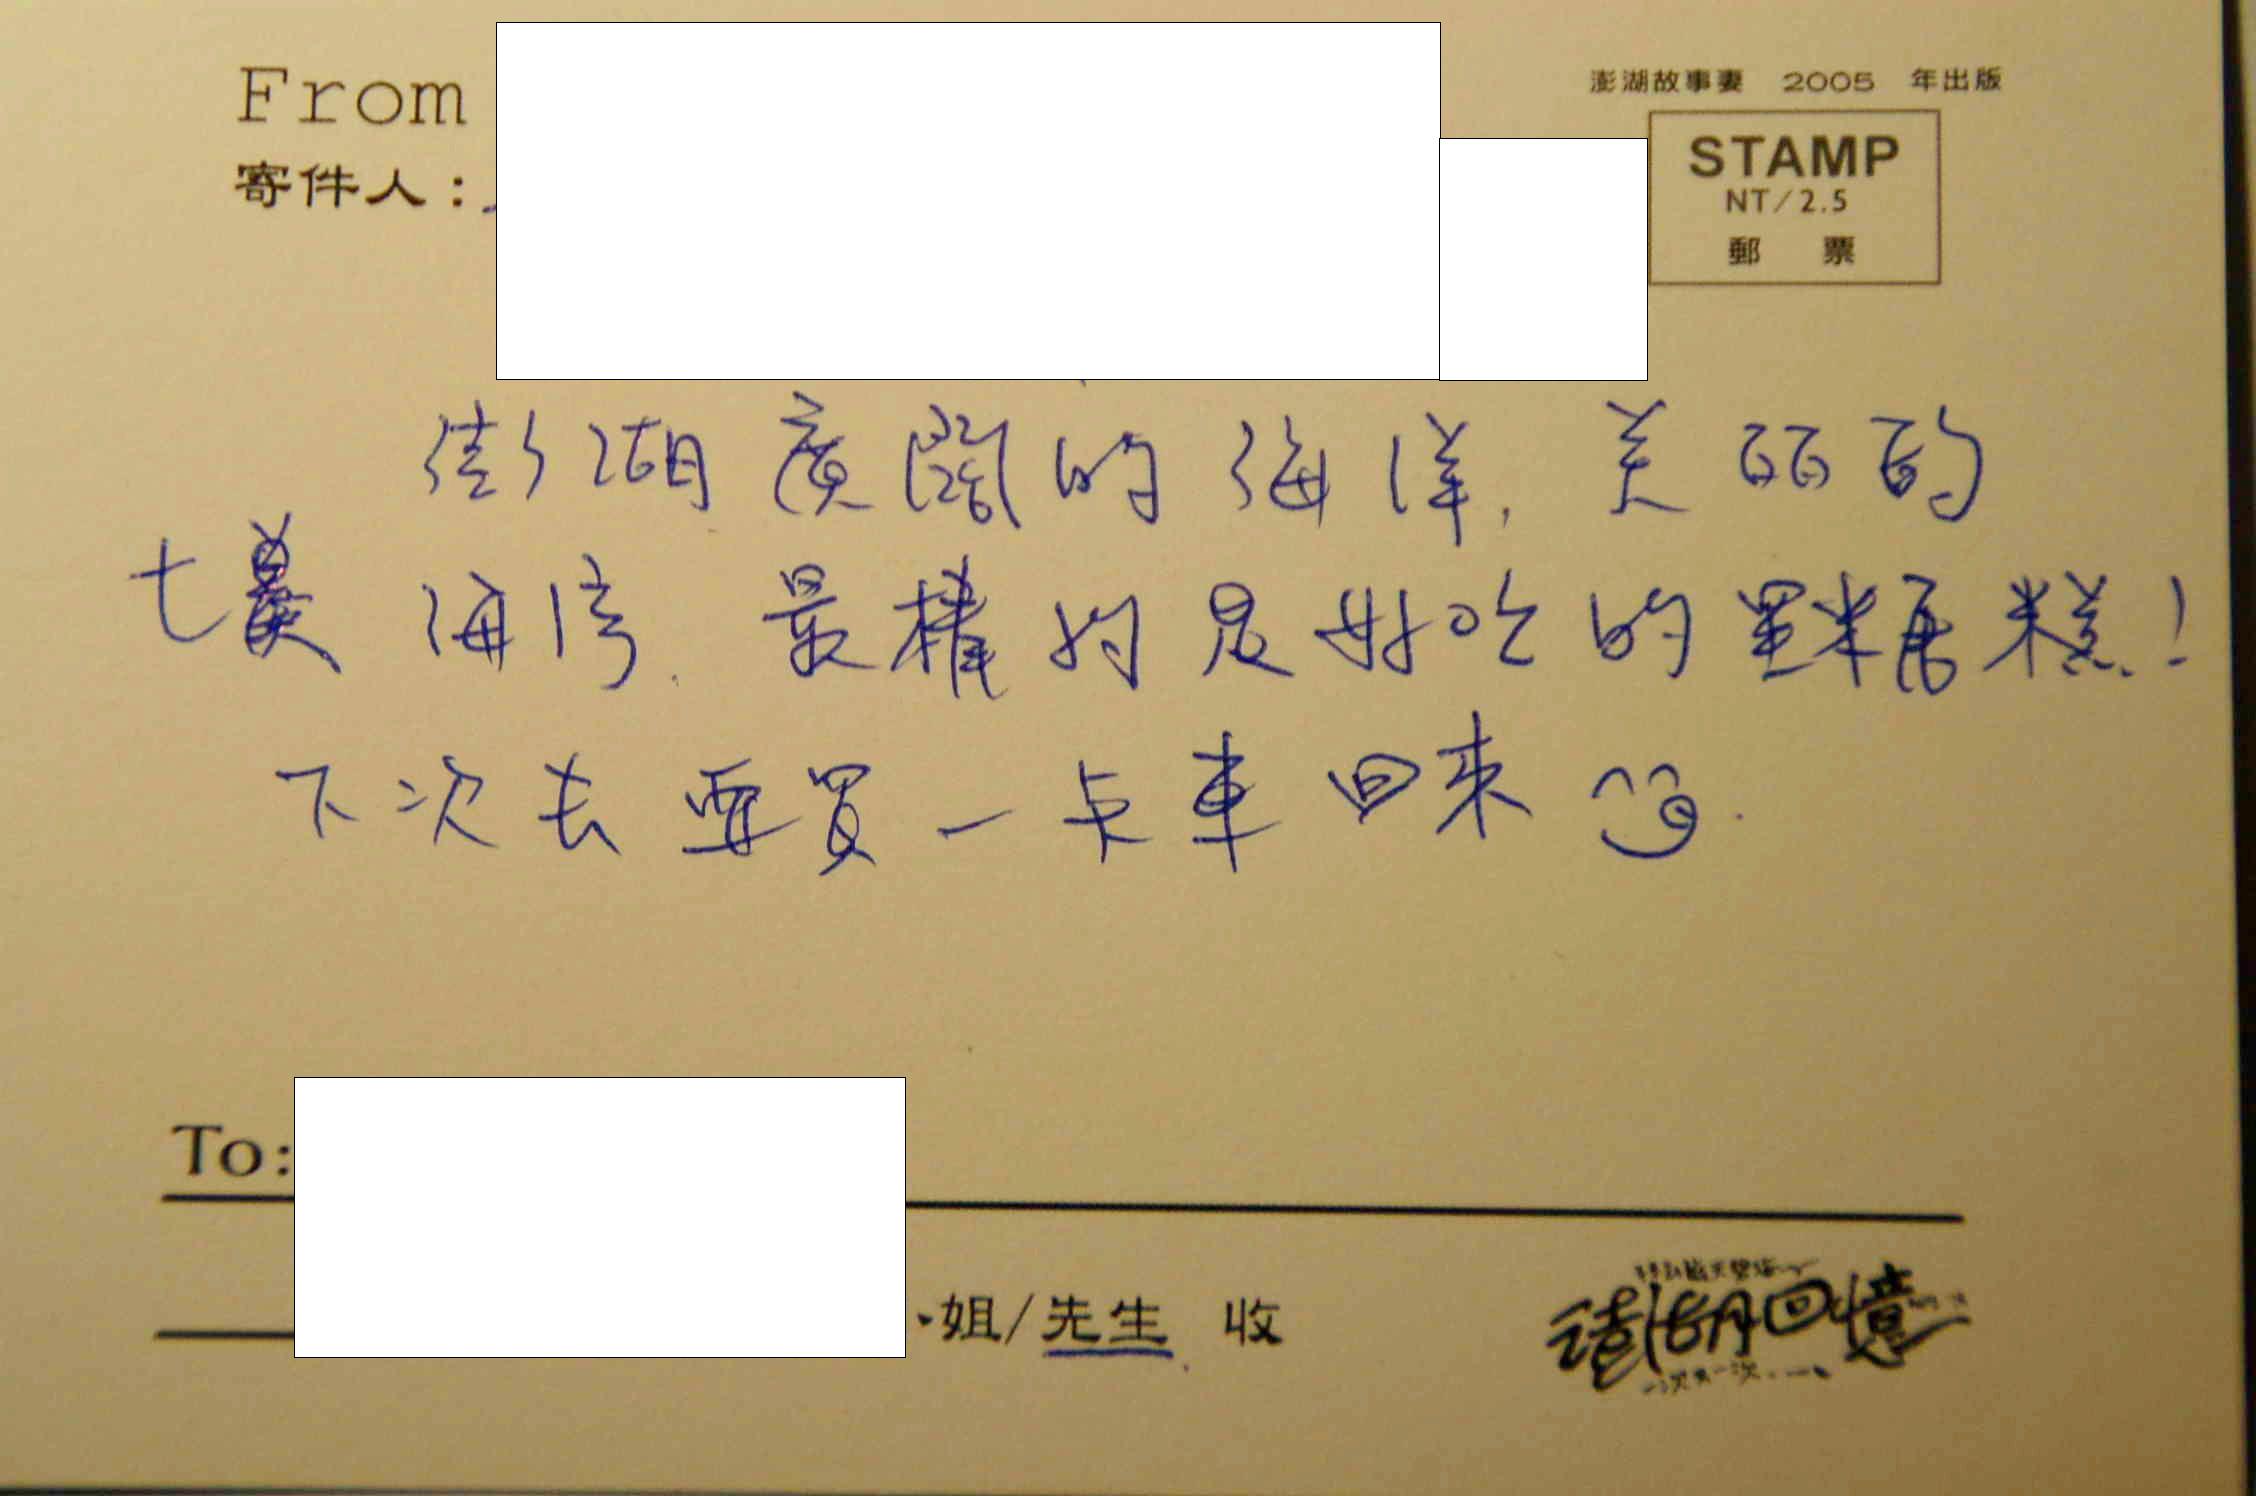 From
澎湖故事妻 2005 年出版
寄件人：
STAMP
NT/2.5
郵 票
澎湖廣闊的海洋, 美丽的
七美 海湾. 最棒的是好吃的黑糖糕!
下次去要買一卡車回來
To:
姐/先生 收
澎湖回憶